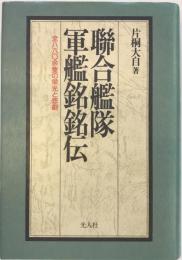 聯合艦隊
軍艦銘銘伝
全八六〇余隻の栄光と悲劇
片桐大自著
光人社